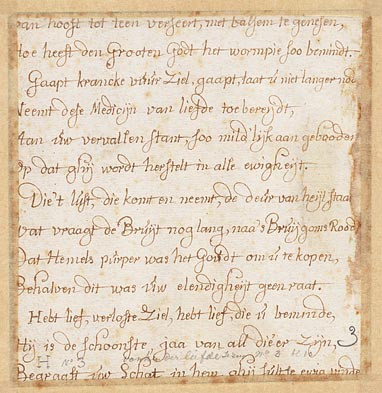 van hooft tot teen verseert, met balsem te genesen,
toe heeft den Grooten Godt het wormpie soo bemindt.
Gaapt krancke vuur Ziel, gaapt, laat u niet langer
Neemt dese Medicijn van liefde toebereijdt,
Aan uw vervallen stant, soo mild'lijk aan gebooden
Op dat ghij wordt herstelt in alle ewigheijt.
Die't lust, die komt en neemt, de deur van heijl staat
wat vraagt de Bruijt nog lang, naa's Bruijgoms Roode
Dat Hemels purper was het Goudt om u te kopen,
Behalven dit was uw elendigheijt geen raat.
Hebt lief, verloste Ziel, hebt lief, die u beminde,
Hij is de schoonste, jaa van all die'er zijn,
3
H no 3 no 3
Begraaft uw Schat in hem, ghij sult